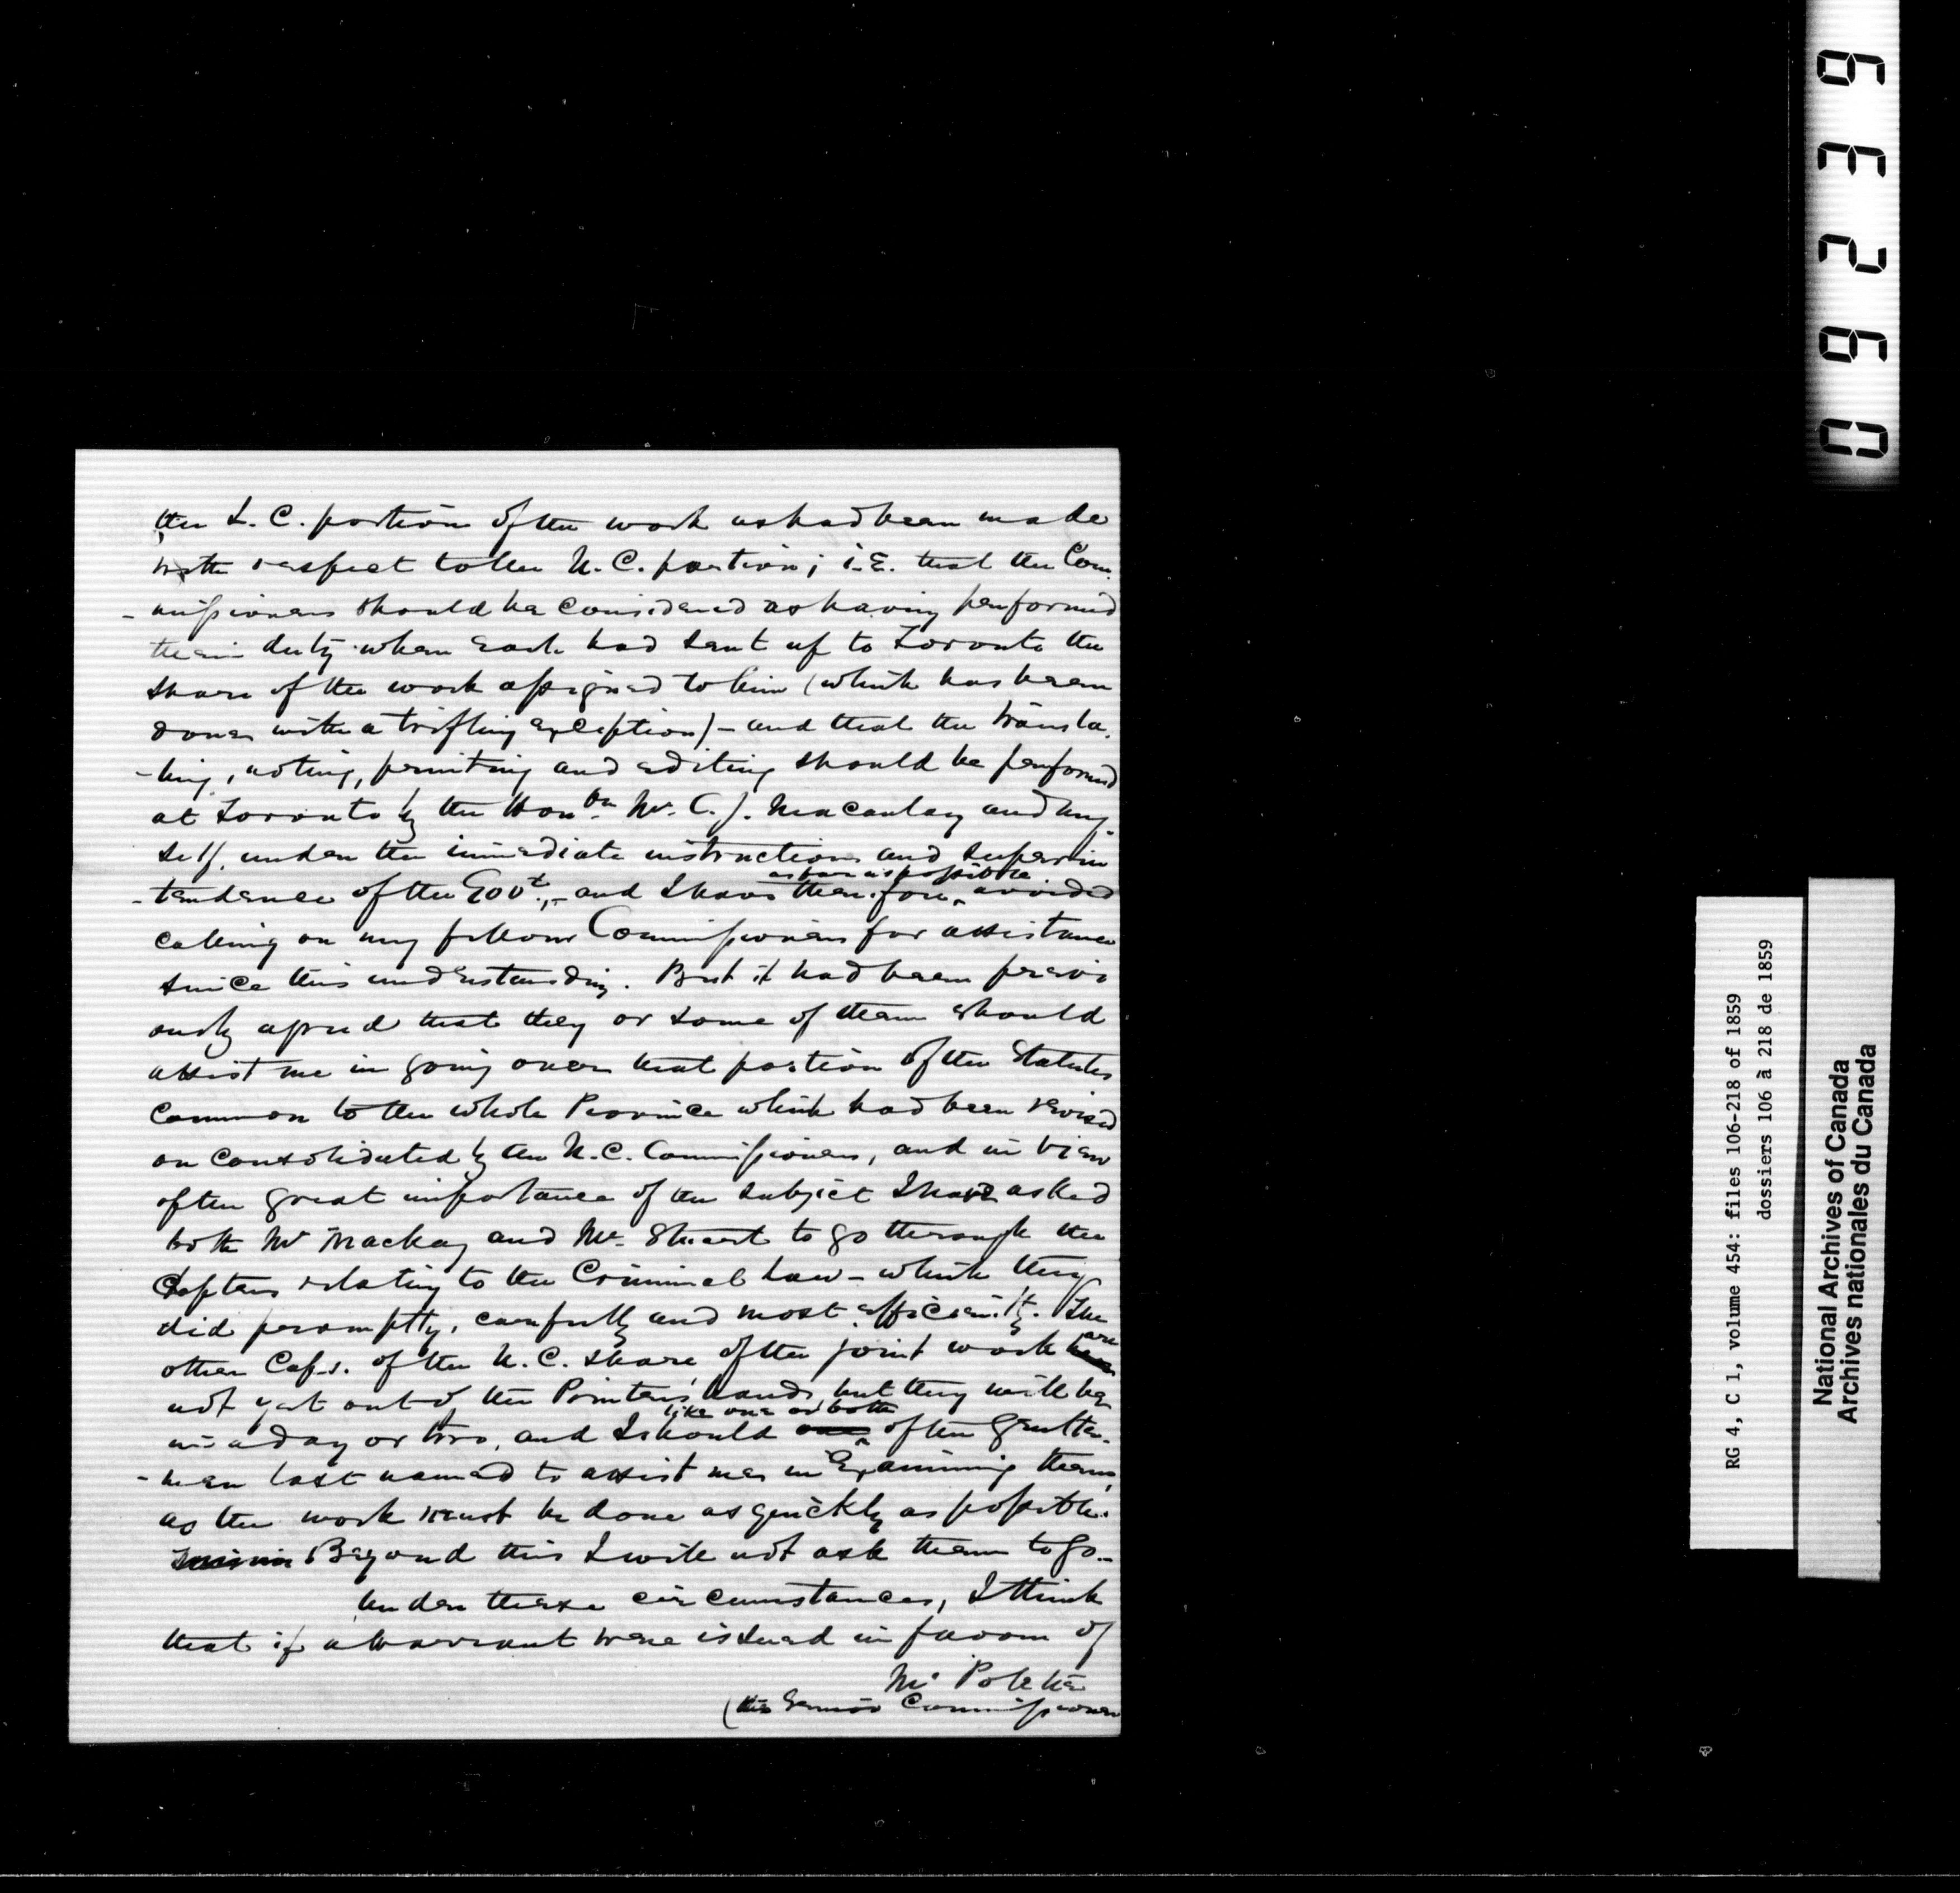 the L. C. portion of the work as had been made
with respect to the U. C. portion; i.e. that the Com-
-missioners should be considered as having performed
their duty when each had sent up to Toronto the
share of the work assigned to him (which has been
done with a trifling exception) - and that the transla-
-ting, noting, printing and editing should be performed
at Toronto by the Honble Mr. C. J. Macaulay and my-
self, under the immediate instructions and superin
as far as possible
-tendence of the Govt., - and I have therefore avoided
calling on my fellow Commissioners for assistance
since this understanding. But it had been previ
ously agreed that they or some of them should
assist me in going over that portion of the Statutes
common to the whole Province which had been revised
or consolidated by the U. C. Commissioners, and in view
of the great importance of the subject I have asked
both Mr Mackay and Mr. Stuart to go through the
Chapters relating to the Criminal Law - which they
did promptly, carefully and most efficiently. The
other Caps. of the U. C. share of the joint work are
not yet out of the Printers' hands, but they will be
like one or both
in a day or two, and I should of the gentle-
-men last named to assist me in examining them,
as the work must be done as quickly as possible.
Beyond this I will not ask them to go -
Under these circumstances, I think
that if a Warrant were issued in favor of
Mr Polette
(the Senior Commissioner
06239
RG 4, C 1, volume 454: files 106-218 of 1859
dossiers 106 à 218 de 1859
National Archives of Canada
Archives nationales du Canada